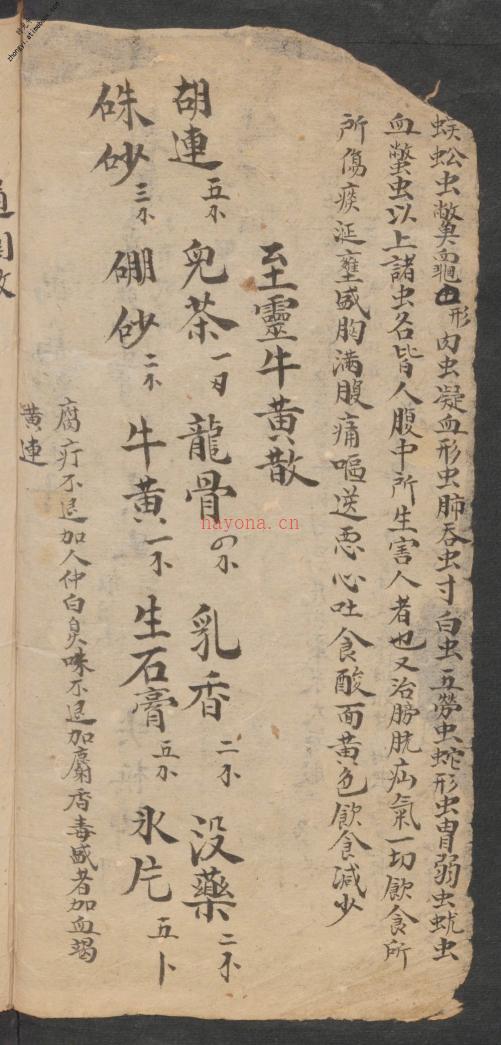 蜈蚣虫鱉臭龜形肉虫凝血形虫肺吞虫寸白虫五勞虫蛇形虫胃弱虫蚘虫
血鱉虫以上諸虫名皆人腹中所生害人者也又治膀胱疝氣一切飲食所
所傷痰涎壅盛胸滿腹痛嘔送悪心吐食酸面黃色飲食減少
至靈牛黃散
胡連五 兒茶一 龍骨 乳香二 没藥二
硃砂三 硼砂二 牛黃一 生石膏五 氷片五卜
腐疔不退加人仲白臭味不退加麝香毒盛者加血竭
黃連
hayona.cn